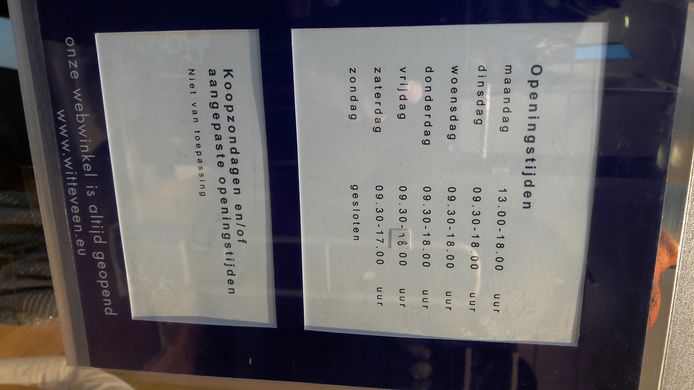 Openingstijden
maandag 13.00-18.00 uur
dinsdag 09.30-18.00 uur
woensdag 09.30-18.00 uur
donderdag 09.30-18.00 uur
vrijdag 09.30-18.00 uur
zaterdag 09.30-17.00 uur
zondag gesloten
Koopzondagen en/of
aangepaste openingstijden
Niet van toepassing
onze webwinkel is altijd geopend
www.witteveen.eu